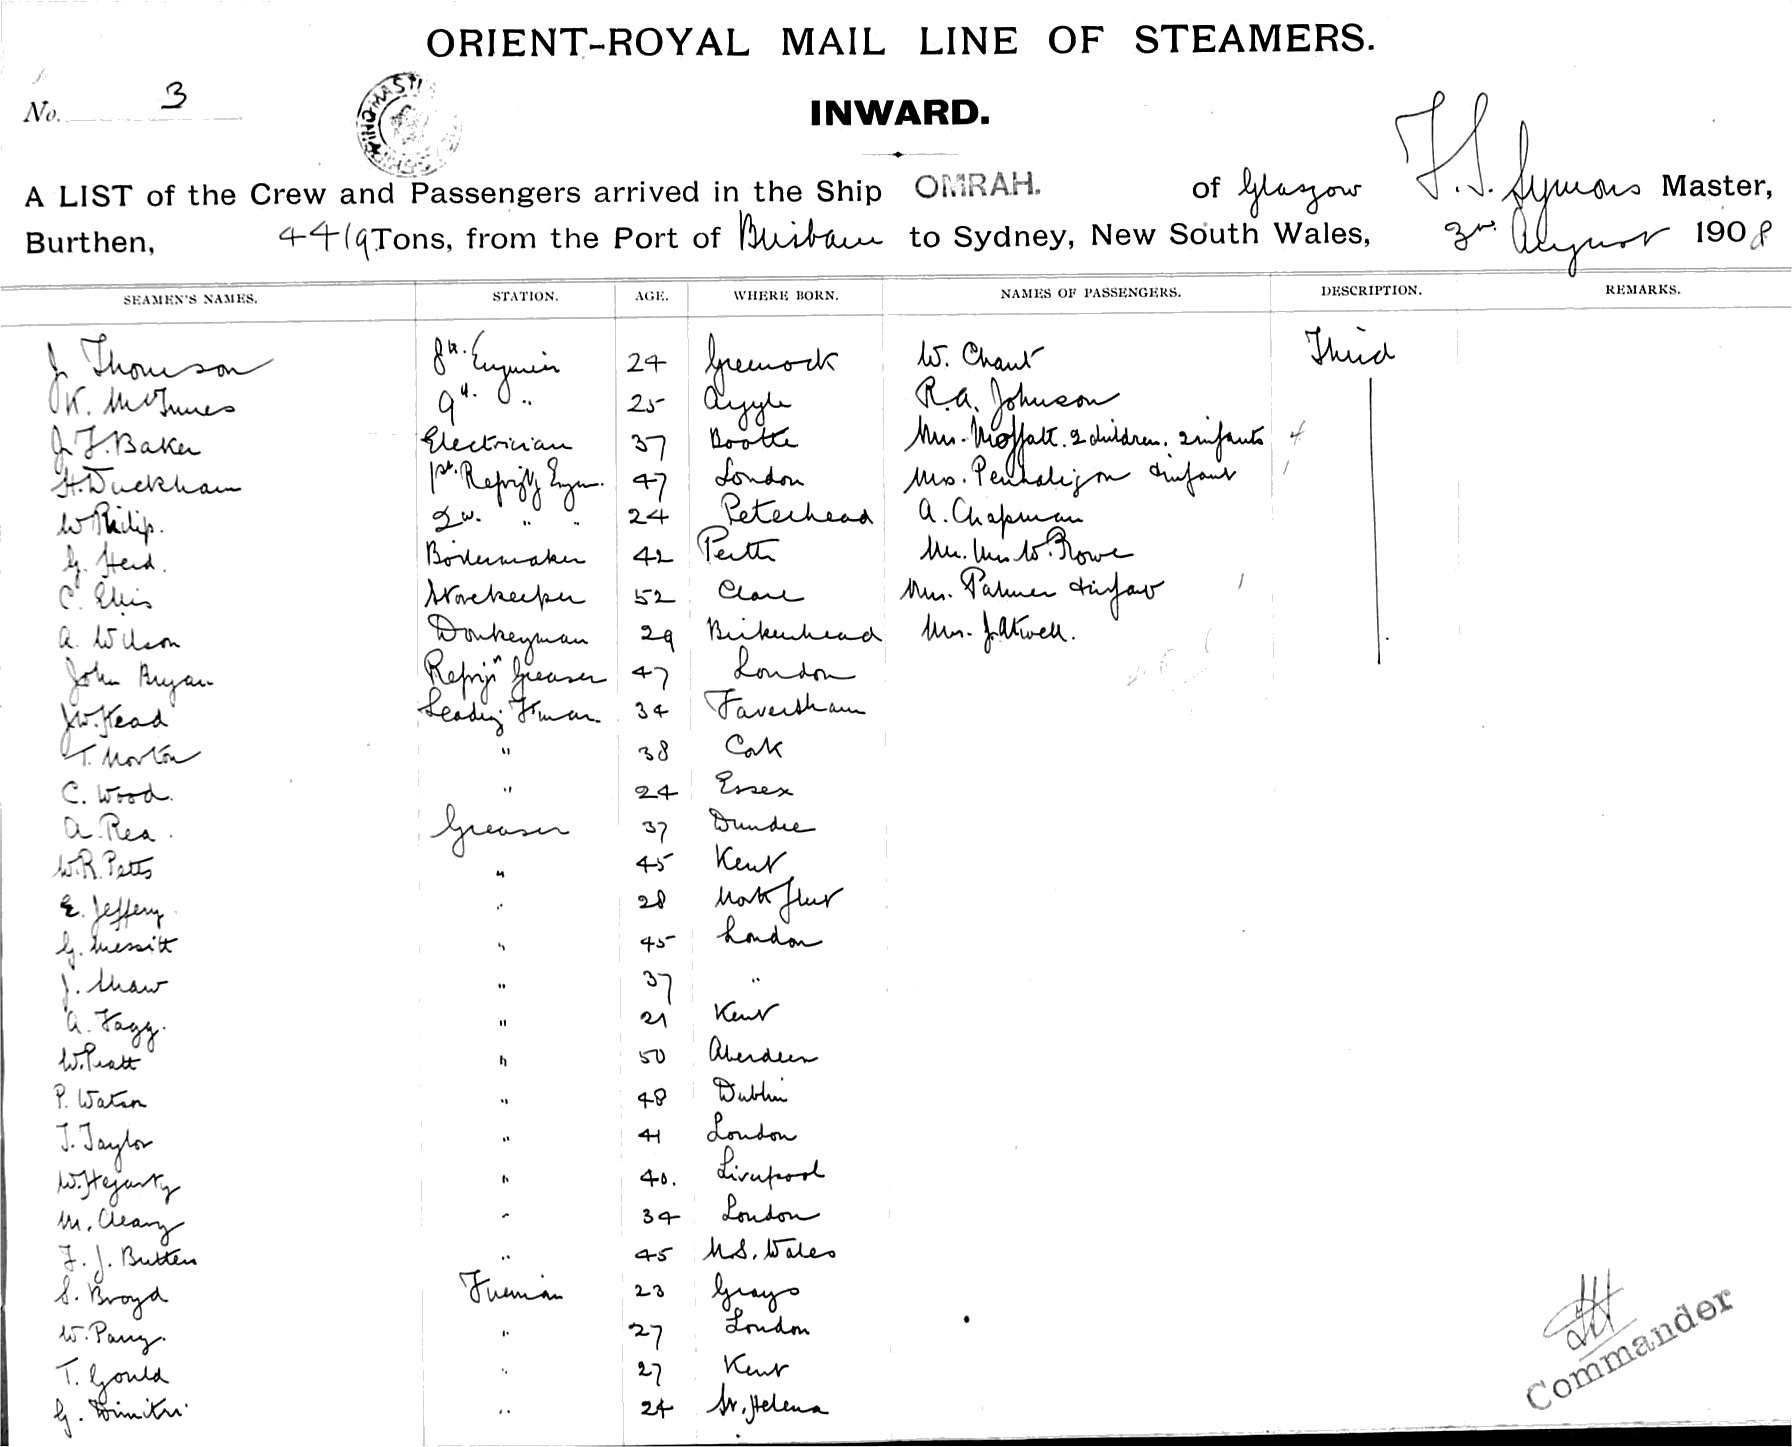 ORIENT-ROYAL MAIL LINE OF STEAMERS.
No. 3
INWARD.
A LIST of the Crew and Passengers arrived in the Ship OMRAH. of Glasgow F. S. Symons Master,
Burthen, 4419 Tons, from the Port of Brisbane to Sydney, New South Wales, 3rd August 1908
SEAMEN'S NAMES. STATION. AGE. WHERE BORN. NAMES OF PASSENGERS. DESCRIPTION. REMARKS.
J Thomson 8th. Engineer 24 Greenock W. Chant Third
K. McInnes 9th. " 25 Argyle R.A. Johnson
J. F. Baker Electrician 37 Bootle Mrs. Moffatt. 2 children. 2 infants 4
H. Duckham 1st. Refrigtg Engnr. 47 London Mrs. Penhaligon & infant 1
W Philip. 2nd. " " 24 Peterhead A. Chapman
G. Herd. Boilermaker 42 Perth Mr. Mrs W. Rowe
C. Ellis Storekeeper 52 Clare Mrs. Palmer & infant 1
A. Wilson Donkeyman 29 Birkenhead Mrs. J. Atwell.
John Bryan Refrigr Greaser 47 London
J.W. Head Leading Fireman. 34 Faversham
T. Norton " 38 Cork
C. Wood. " 24 Essex
A. Rea. Greaser 37 Dundee
W.R. Petts " 45 Kent
E. Jeffery " 28 Northfleet
G. Messitt " 45 London
J. Shaw " 37 "
A. Fagg. " 21 Kent
W. Pratt " 50 Aberdeen
P. Watson " 48 Dublin
J. Taylor " 41 London
W. Hegarty " 40. Liverpool
M. Cleary " 34 London
F. J. Butters " 45 N.S. Wales
S. Broyd Fireman 23 Grays
W. Parry. " 27 London
T. Gould " 27 Kent
G. Dimitri " 24 St. Helena
Commander